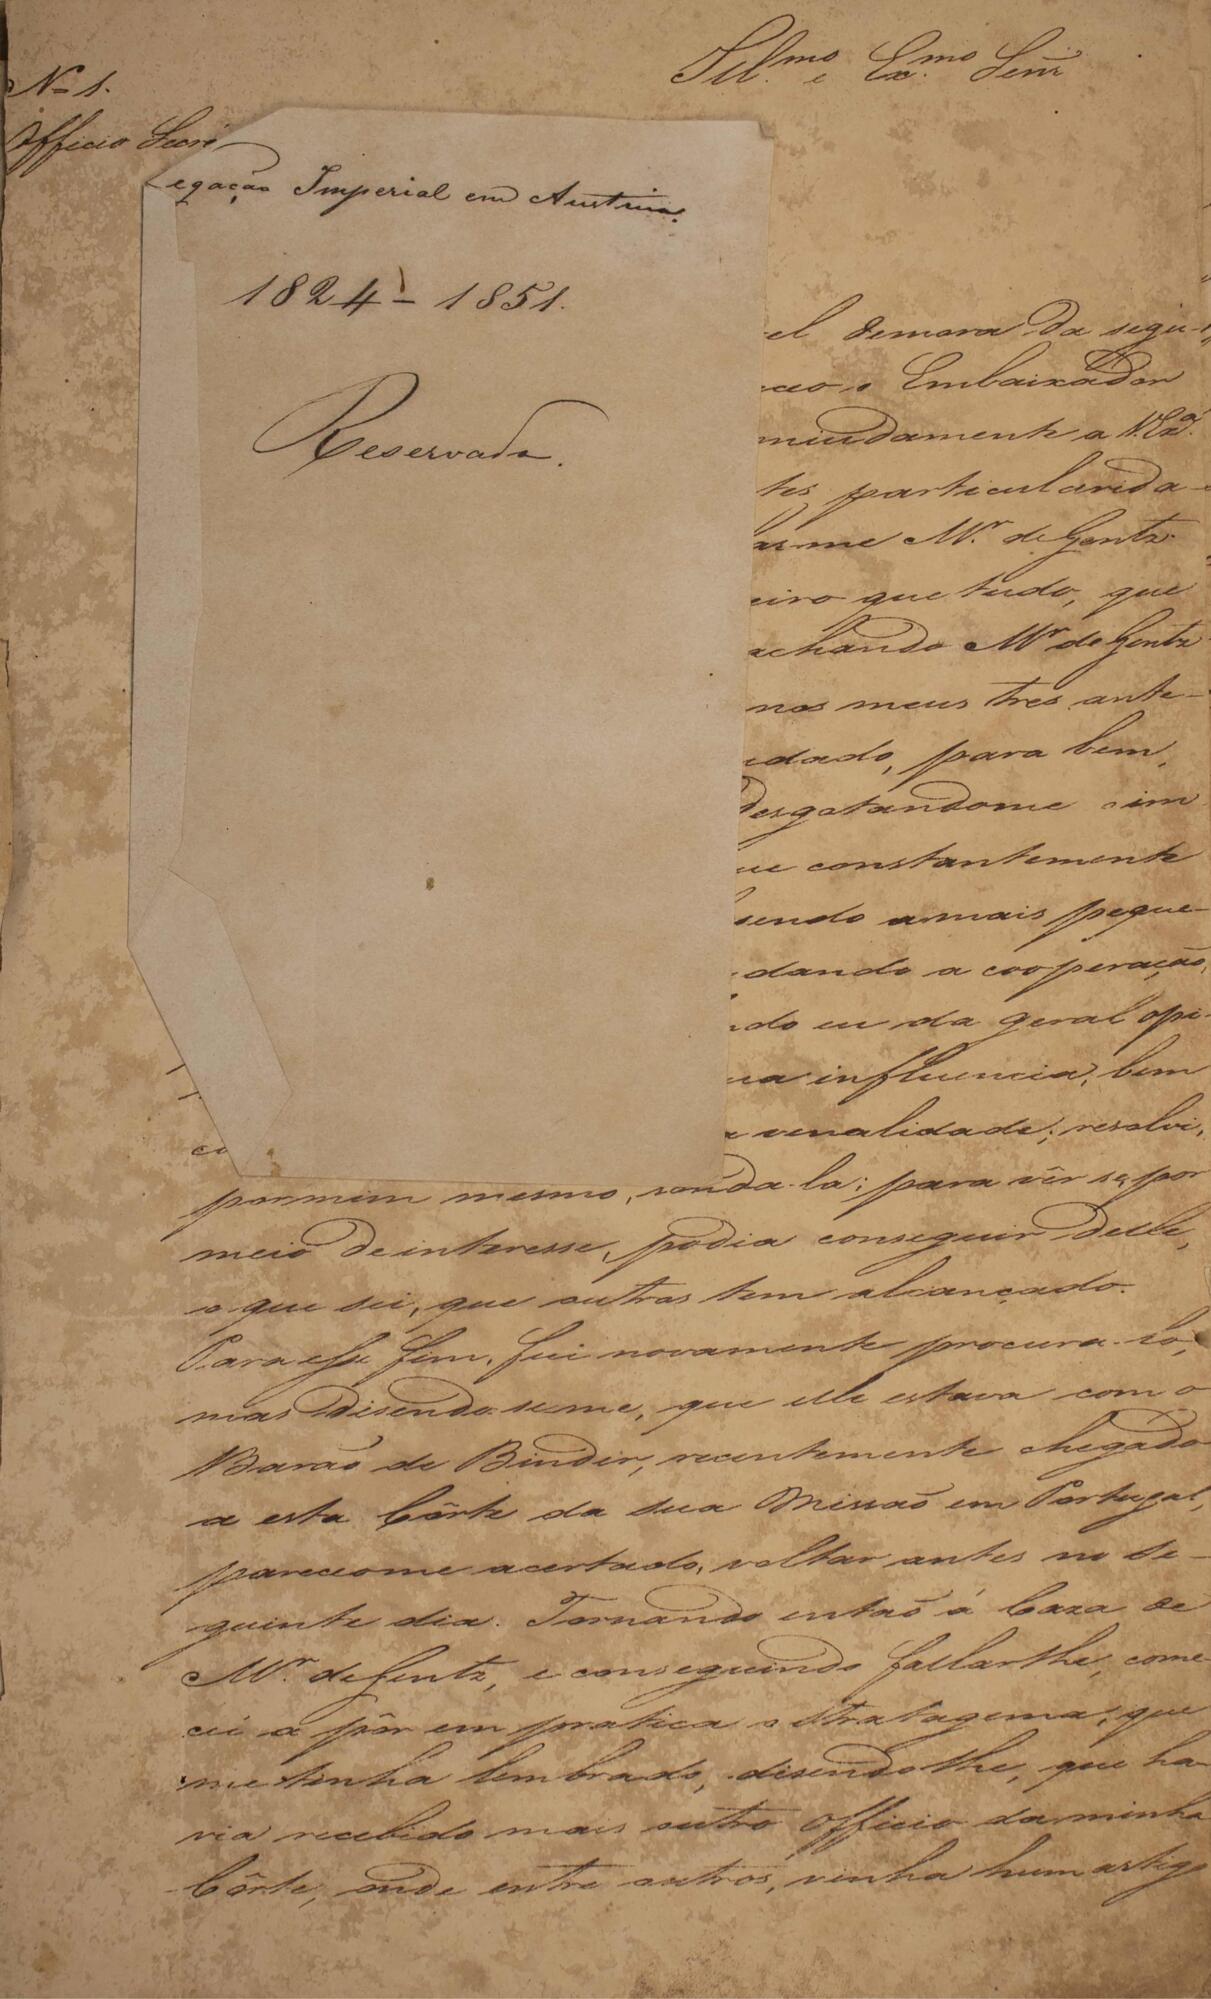 Nº 1.
Ill.mo e Ex.mo Senr
Officio Secre
egação Imperial em Austria.
1824 - 1851.
Reservada.
el demora da segu-
ceo o Embaixador
miudamente a V. Exª.
tes particularida-
as me Mr. de Gentz
eiro que tudo, que
achando Mr de Gentz
nos meus tres ante-
dado, para bem,
desgotandome com
ue constantemente
sendo a mais peque-
dando a cooperação,
ndo eu da geral opi-
ua influencia, bem
a venalidade; resolvi,
co
por mim mesmo, sonda-la; para vêr se, por
meio de interesse, podia conseguir delle,
o que sei, que outros tem alcançado.
Para esse fim, fui novamente procura-lo;
mas disendo-se me, que elle estava com o
Barão de Binder, recentemente chegado
a esta Côrte da sua Missão em Portugal,
pareceome acertado, voltar antes no se-
guinte dia. Tornando então á Caza de
Mr. de Gentz, e conseguindo fallarlhe, come-
cei a pôr em pratica o stratagema, que
me tinha lembrado, disendolhe, que ha-
via recebido mais outro Officio da minha
Côrte, onde entre outros, vinha hum artigo